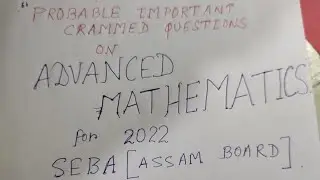 "PROBABLE IMPORTANT
CRAMMED QUESTIONS
ON
ADVANCED
MATHEMATICS
for 2022
SEBA [ASSAM BOARD]